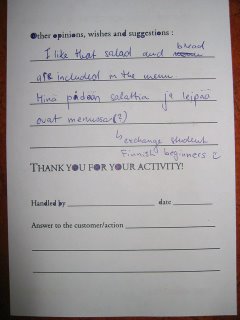 Other opinions, wishes and suggestions :
I like that salad and bread
are included in the menu
Minä pidän salattia ja leipää
ovat menussa(?)
exchange student
Finnish beginners 2
THANK YOU FOR YOUR ACTIVITY!
Handled by date
Answer to the customer/action